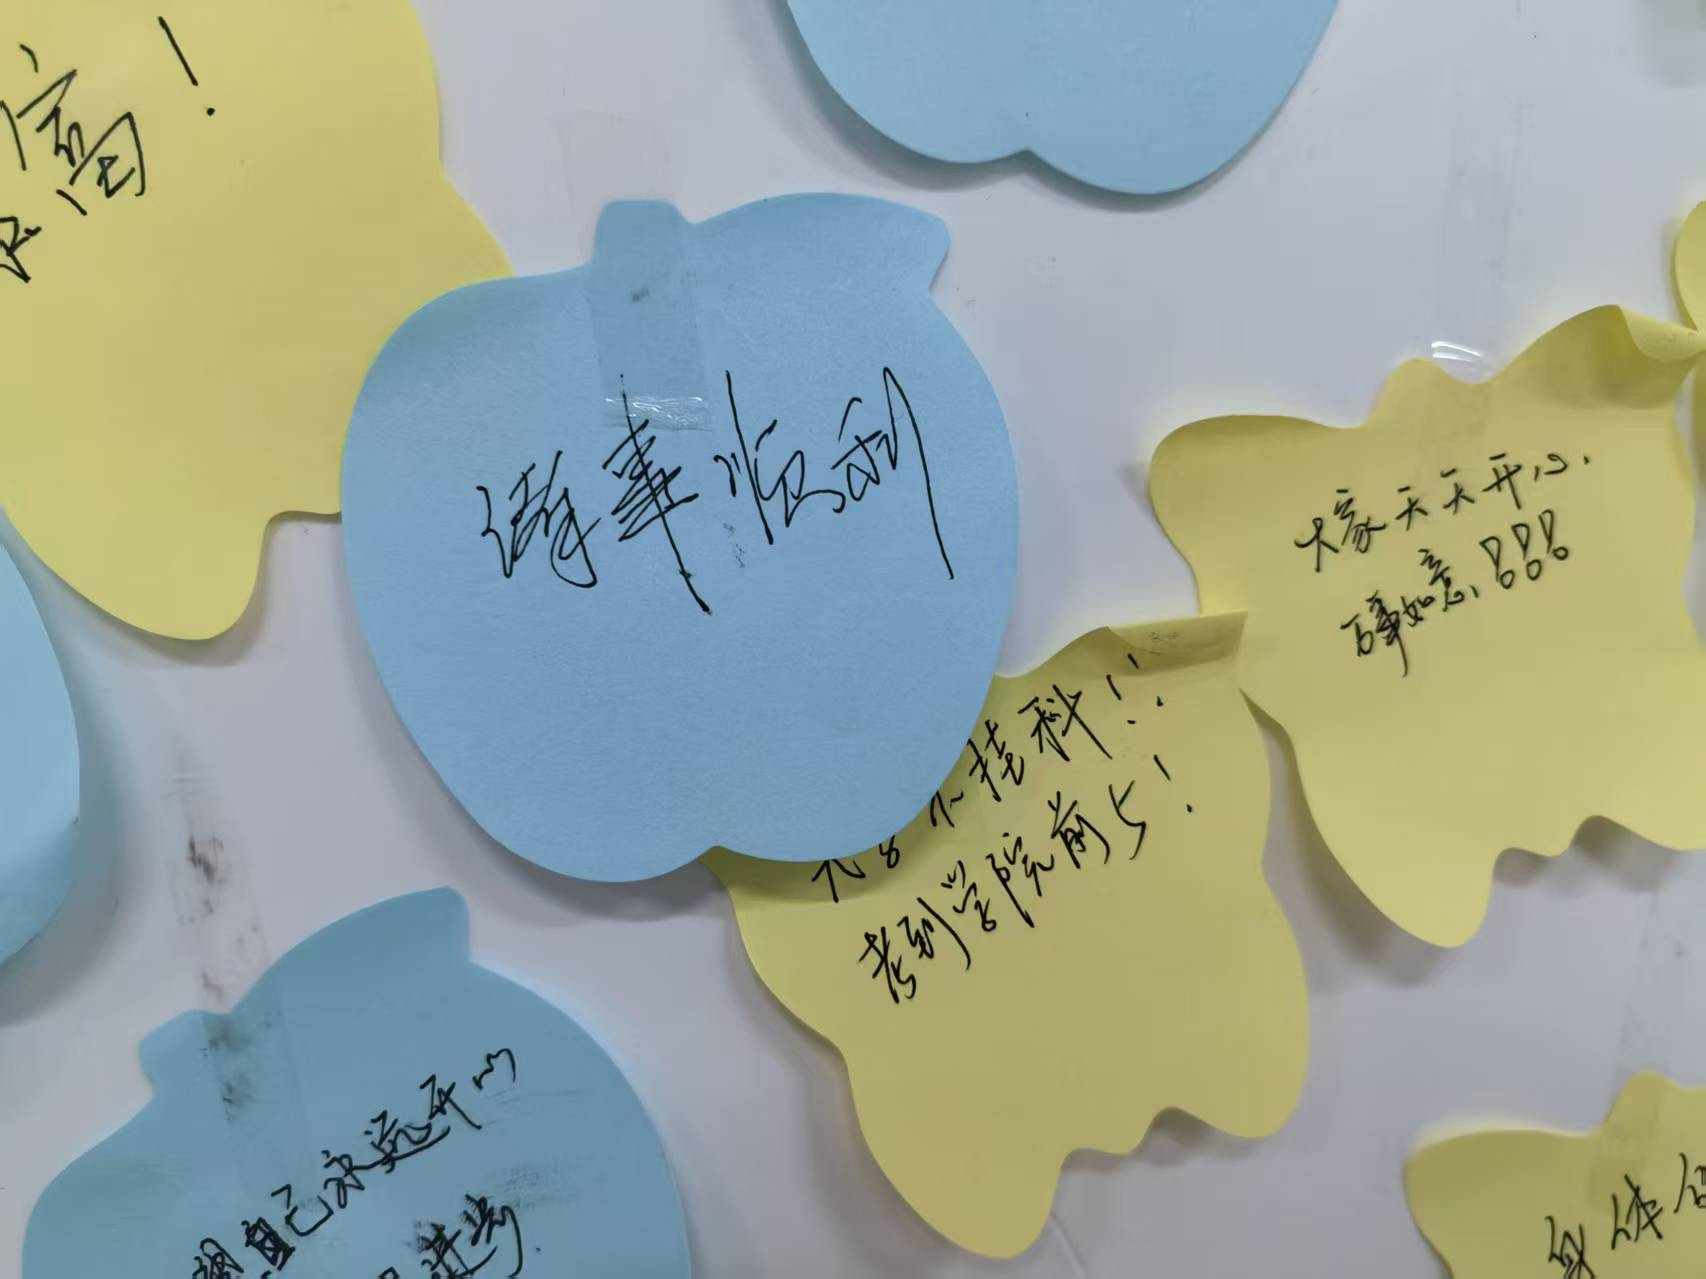 富！
诸事顺利
大家天天开心，
万事如意！！！
不挂科！！
考到学院前5！
自己永远开心
进步
身体